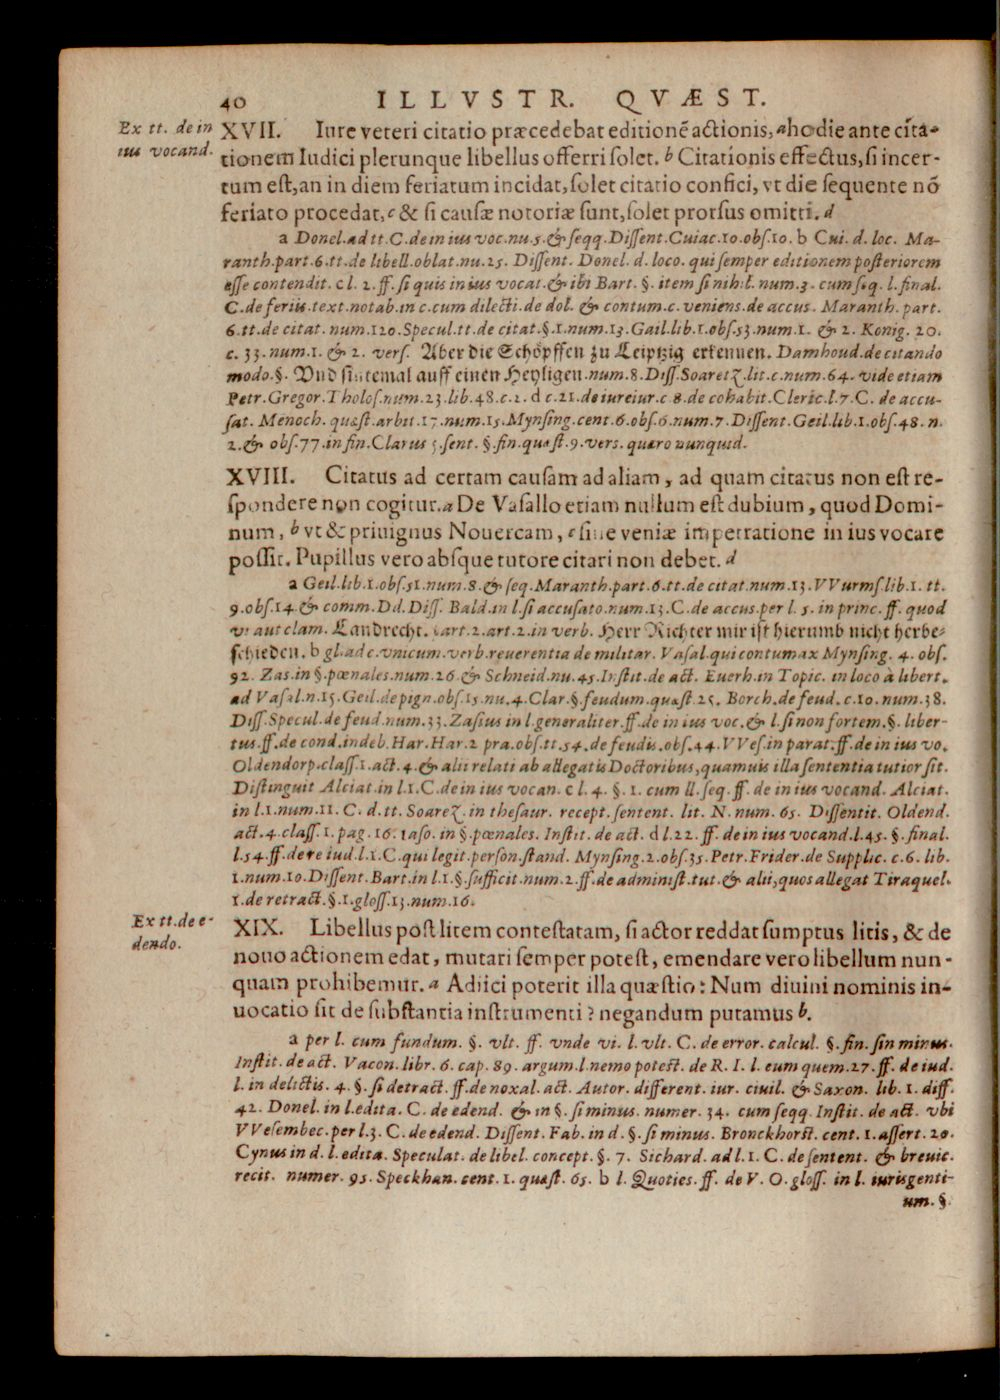 40 ILLVSTR. QVÆST.
Ex tt. de in
ius vocand.
XVII. Iure veteri citatio præcedebat editionē actionis, a hodie ante cita-
tionem Iudici plerunque libellus offerri ſolet. b Citationis effectus, ſi incer-
tum eſt, an in diem feriatum incidat, ſolet citatio confici, vt die ſequente nō
feriato procedat, c & ſi cauſæ notoriæ ſunt, ſolet prorſus omitti. d
a Donel. ad tt. C. de in ius voc. nu. 5. & ſeqq. Diſſent. Cuiac. 10. obſ. 10. b Cui. d. loc. Ma-
ranth. part. 6. tt. de libell. oblat. nu. 25. Diſſent. Donel. d. loco. qui ſemper editionem poſteriorem
eſſe contendit. c l. 2. ff. ſi quis in ius vocat. & ibi Bart. §. item ſi nihil. num. 3. cum ſeq. l. final.
C. de feriis. text. notab. in c. cum dilecti. de dol. & contum. c. veniens. de accus. Maranth. part.
6. tt. de citat. num. 120. Specul. tt. de citat. §. 1. num. 13. Gail. lib. 1. obſ. 53. num. 1. & 2. Konig. 20.
c. 33. num. 1. & 2. verſ. Aber die Schöpffen zu Leiptzig erkennen. Damhoud. de citando
modo. §. Vnd ſintemal auff einen Heyligen. num. 8. Diſſ. Soarez. lit. c. num. 64. vide etiam
Petr. Gregor. Tholoſ. num. 23. lib. 48. c. 2. d c. 21. de iureiur. c 8. de cohabit. Cleric. l. 7. C. de accu-
ſat. Menoch. quæſt. arbit. 17. num. 15. Mynſing. cent. 6. obſ. 6. num. 7. Diſſent. Geil. lib. 1. obſ. 48. n.
2. & obſ. 77. in fin. Clarus 5. ſent. §. fin. quæſt. 9. verſ. quæro nunquid.
XVIII. Citatus ad certam cauſam ad aliam, ad quam citatus non eſt re-
ſpondere non cogitur. a De Vaſallo etiam nullum eſt dubium, quod Domi-
num, b vt & priuignus Nouercam, c ſine veniæ impetratione in ius vocare
poſſit. Pupillus vero abſque tutore citari non debet. d
a Geil. lib. 1. obſ. 51. num. 8. & ſeq. Maranth. part. 6. tt. de citat. num. 13. VVurmſ. lib. 1. tt.
9. obſ. 14. & comm. Dd. Diſſ. Bald. in l. ſi accuſato. num. 13. C. de accus. per l. 5. in princ. ff. quod
vi aut clam. Landrecht. art. 2. art. 2. in verb. Herr Richter mir iſt hierumb nicht herbe-
ſchieden. b gl. ad c. vnicum. verb. reuerentia de militar. Vaſal. qui contumax Mynſing. 4. obſ.
92. Zas. in §. pœnales. num. 26. & Schneid. nu. 45. Inſtit. de act. Euerh. in Topic. in loco à libert.
ad Vaſal. n. 15. Geil. de pign. obſ. 15. nu. 4. Clar. §. feudum. quæſt. 25. Borch. de feud. c. 10. num. 38.
Diſſ. Specul. de feud. num. 33. Zaſius in l. generaliter. ff. de in ius voc. & l. ſi non fortem. §. liber-
tus. ff. de cond. indeb. Har. Har. 2 pra. obſ. tt. 54. de feudis. obſ. 44. VVeſ. in parat. ff. de in ius vo.
Oldendorp. claſſ. 1. act. 4. & alii relati ab allegatis Doctoribus, quamuis illa ſententia tutior ſit.
Diſtinguit Alciat. in l. 1. C. de in ius vocan. c l. 4. §. 1. cum ll. ſeq. ff. de in ius vocand. Alciat.
in l. 1. num. 11. C. d. tt. Soarez. in theſaur. recept. ſentent. lit. N. num. 65. Diſſentit. Oldend.
act. 4. claſſ. 1. pag. 16. Iaſo. in §. pœnales. Inſtit. de act. d l. 22. ff. de in ius vocand. l. 45. §. final.
l. 54. ff. de re iud. l. 1. C. qui legit. perſon. ſtand. Mynſing. 2. obſ. 35. Petr. Frider. de Supplic. c. 6. lib.
1. num. 10. Diſſent. Bart. in l. 1. §. ſufficit. num. 2. ff. de adminiſt. tut. & alii, quos allegat Tiraquel.
1. de retract. §. 1. gloſſ. 13. num. 16.
Ex tt. de e-
dendo.
XIX. Libellus poſt litem conteſtatam, ſi actor reddat ſumptus litis, & de
nouo actionem edat, mutari ſemper poteſt, emendare vero libellum nun-
quam prohibemur. a Adiici poterit illa quæſtio: Num diuini nominis in-
uocatio ſit de ſubſtantia inſtrumenti? negandum putamus b.
a per l. cum fundum. §. vlt. ff. vnde vi. l. vlt. C. de error. calcul. §. fin. ſin minus.
Inſtit. de act. Vacon. libr. 6. cap. 89. argum. l. nemo poteſt. de R. I. l. eum quem. 27. ff. de iud.
l. in delictis. 4. §. ſi detract. ff. de noxal. act. Autor. different. iur. ciuil. & Saxon. lib. 1. diff.
42. Donel. in l. edita. C. de edend. & in §. ſi minus. numer. 34. cum ſeqq. Inſtit. de act. vbi
VVeſembec. per l. 3. C. de edend. Diſſent. Fab. in d. §. ſi minus. Bronckhorſt. cent. 1. aſſert. 20.
Cynus in d. l. edita. Speculat. de libel. concept. §. 7. Sichard. ad l. 1. C. de ſentent. & breuic.
recit. numer. 95. Speckhan. cent. 1. quæſt. 65. b l. Quoties. ff. de V. O. gloſſ. in l. iurisgenti-
um. §.